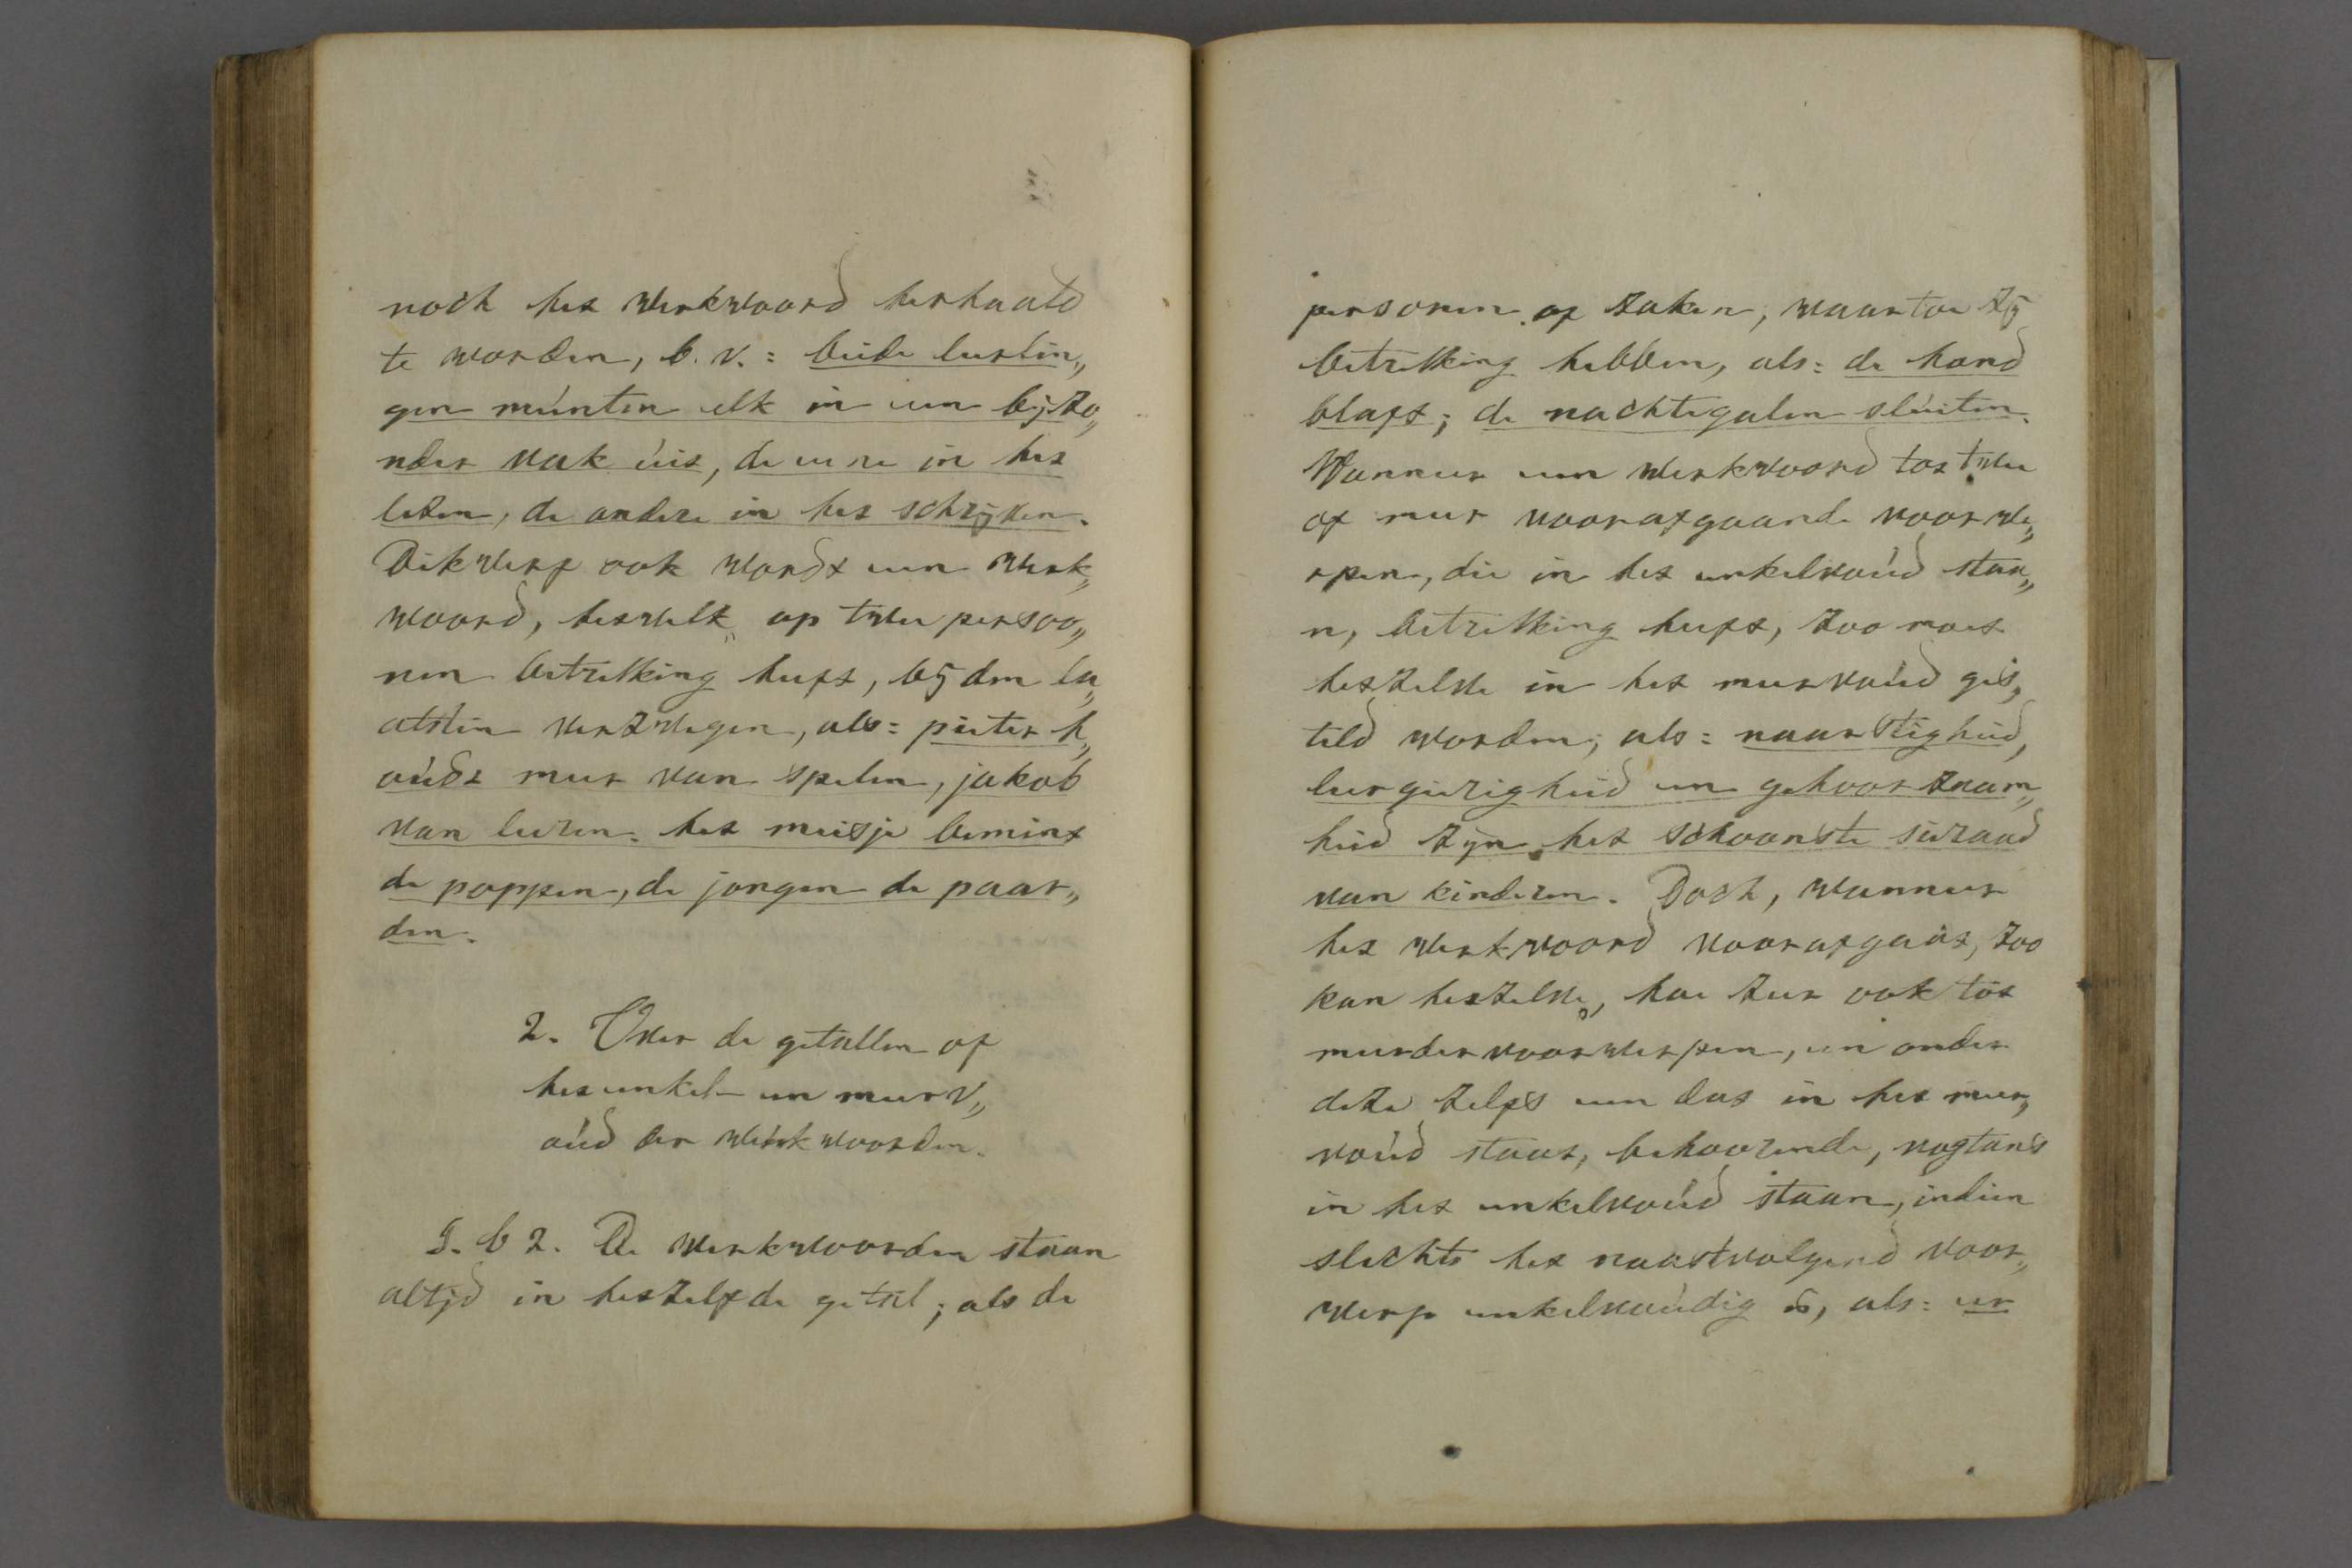 noch het werkwoord herhaald
te worden, b. v.: beide leerlin„
gen múnten elk in een bijzo„
nder vak úit, de eene in het
lezen, de andere in het schrijven.
Dikwerf ook wordt een werk„
woord, hetwelk op twee persoo„
nen betrekking heeft, bij den la„
atsten verzwegen, als: pieter h„
oúdt meer van spelen, jakob
van leeren. het meisje bemint
de poppen, de jongen de paar„
den.
2. Over de getallen of
het enkel- en meerv„
oúd der werkwoorden.
§. 62. De werkwoorden staan
altijd in hetzelfde getal; als de
personen of zaken, waartoe zij
betrekking hebben, als: de hond
blaft; de nachtegalen slúiten.
Wanneer een werkwoord tot twee
of meer voorafgaande voorwe„
rpen, die in het enkelvoúd staa„
n, betrekking heeft, zoo moet
hetzelve in het meervoúd ges„
teld worden; als: naarstigheid,
leergierigheid en gehoorzaam„
heid zijn het schoonste sieraad
van kinderen. Doch, wanneer
het werkwoord voorafgaat, zoo
kan hetzelve, hoe zeer ook tot
meerder voorwerpen, en onder
deze zelfs een dat in het meer„
voúd staat, behoorende, nogtans
in het enkelvoúd staan, indien
slechts het naastvolgend voor„
werp enkelvoúdig is, als: er